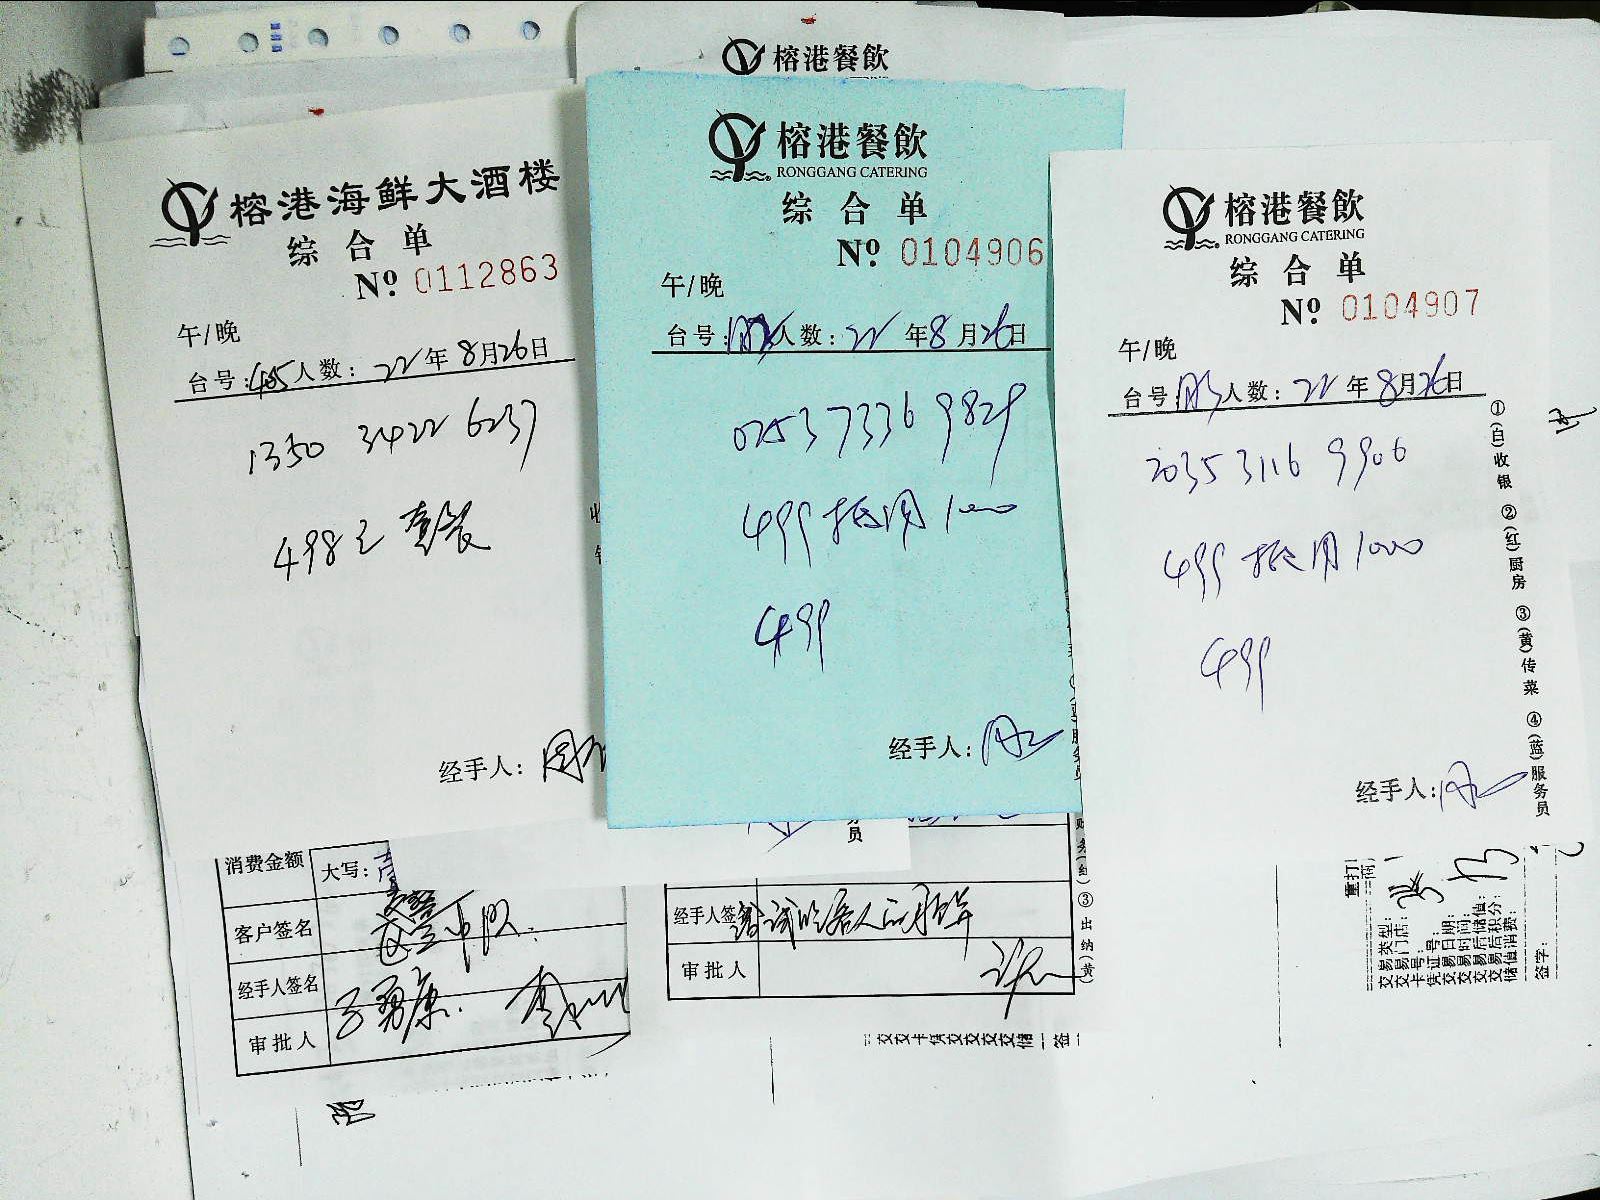 榕港餐飲
榕港海鲜大酒楼
综合单
Nº 0112863
午/晚
台号:405人数:22年8月26日
1350 3422 6237
498元 套餐
经手人:
榕港餐飲
RONGGANG CATERING
综合单
Nº 0104906
午/晚
台号: 人数:22年8月26日
0253 7336 9829
499抵用1000
499
经手人:
榕港餐飲
RONGGANG CATERING
综合单
Nº 0104907
午/晚
台号: 人数:22年8月26日
2035 3116 9906
499抵用1000
499
经手人:
①(白)收银 ②(红)厨房 ③(黄)传菜 ④(蓝)服务员
消费金额
大写:
客户签名
经手人签名
审批人
务员
经手人签名
审批人
③出纳(黄)
重打
交易类型:
交易门店:
卡号:
凭证号:
交易日期:
交易时间:
交易后储值:
交易后积分:
储值消费:
签字: